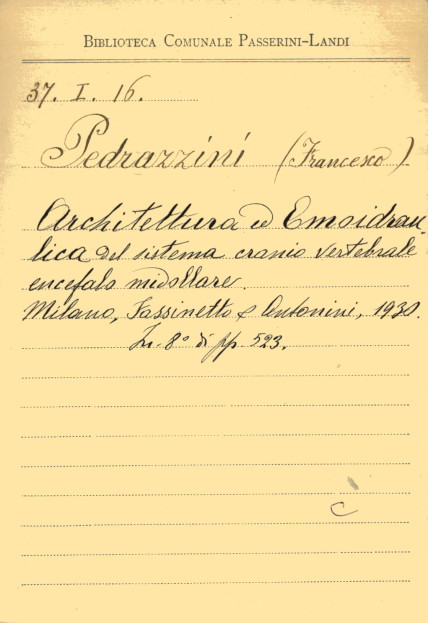 BIBLIOTECA COMUNALE PASSERINI-LANDI
37. I. 16.
Pedrazzini (Francesco)
Architettura ed Emoidrau-
lica del sistema cranio vertebrale
encefalo midollare.
Milano, Fassinetto & Antonini, 1930.
In-8° di pp. 523.
C